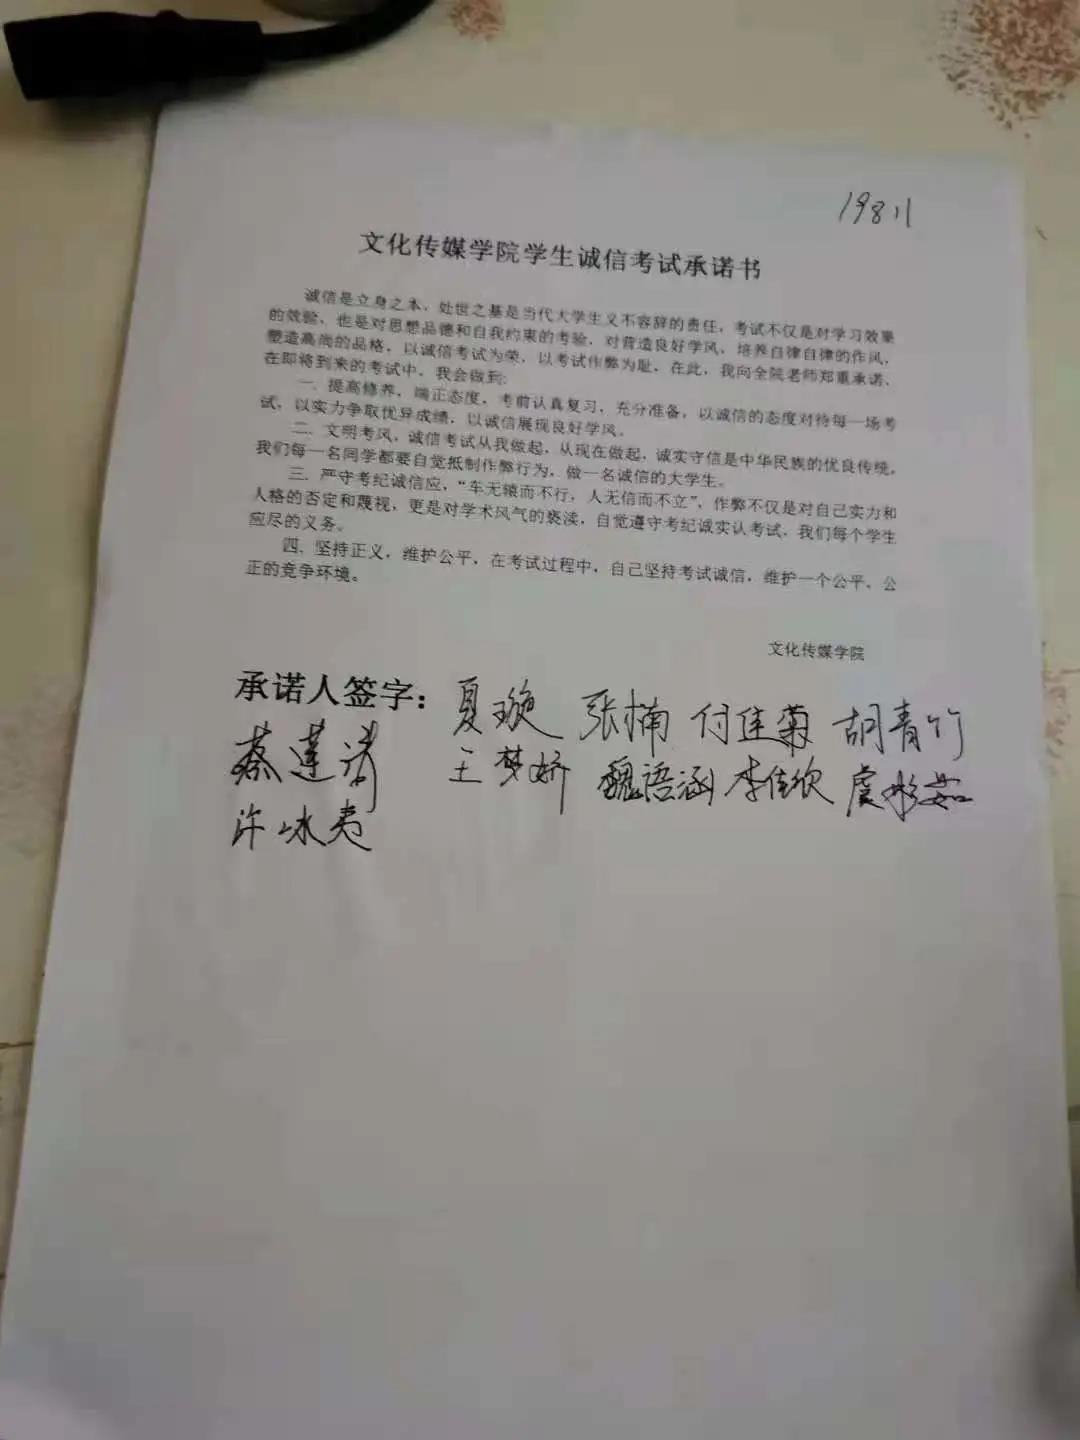 19811
文化传媒学院学生诚信考试承诺书
诚信是立身之本、处世之基是当代大学生义不容辞的责任，考试不仅是对学习效果
的效验，也是对思想品德和自我约束的考验，对营造良好学风，培养自律自律的作风，
塑造高尚的品格，以诚信考试为荣，以考试作弊为耻，在此，我向全院老师郑重承诺，
在即将到来的考试中，我会做到：
一．提高修养，端正态度，考前认真复习，充分准备，以诚信的态度对待每一场考
试，以实力争取优异成绩，以诚信展现良好学风。
二．文明考风，诚信考试从我做起，从现在做起，诚实守信是中华民族的优良传统，
我们每一名同学都要自觉抵制作弊行为、做一名诚信的大学生。
三．严守考纪诚信应，“车无辕而不行，人无信而不立”，作弊不仅是对自己实力和
人格的否定和蔑视，更是对学术风气的亵渎，自觉遵守考纪诚实认考试，我们每个学生
应尽的义务。
四．坚持正义，维护公平，在考试过程中，自己坚持考试诚信，维护一个公平、公
正的竞争环境。
文化传媒学院
承诺人签字：夏璇 张楠 付佳菊 胡青竹
蔡莲 王梦娇 魏语涵 李佳欣 虞彬茹
许冰夷